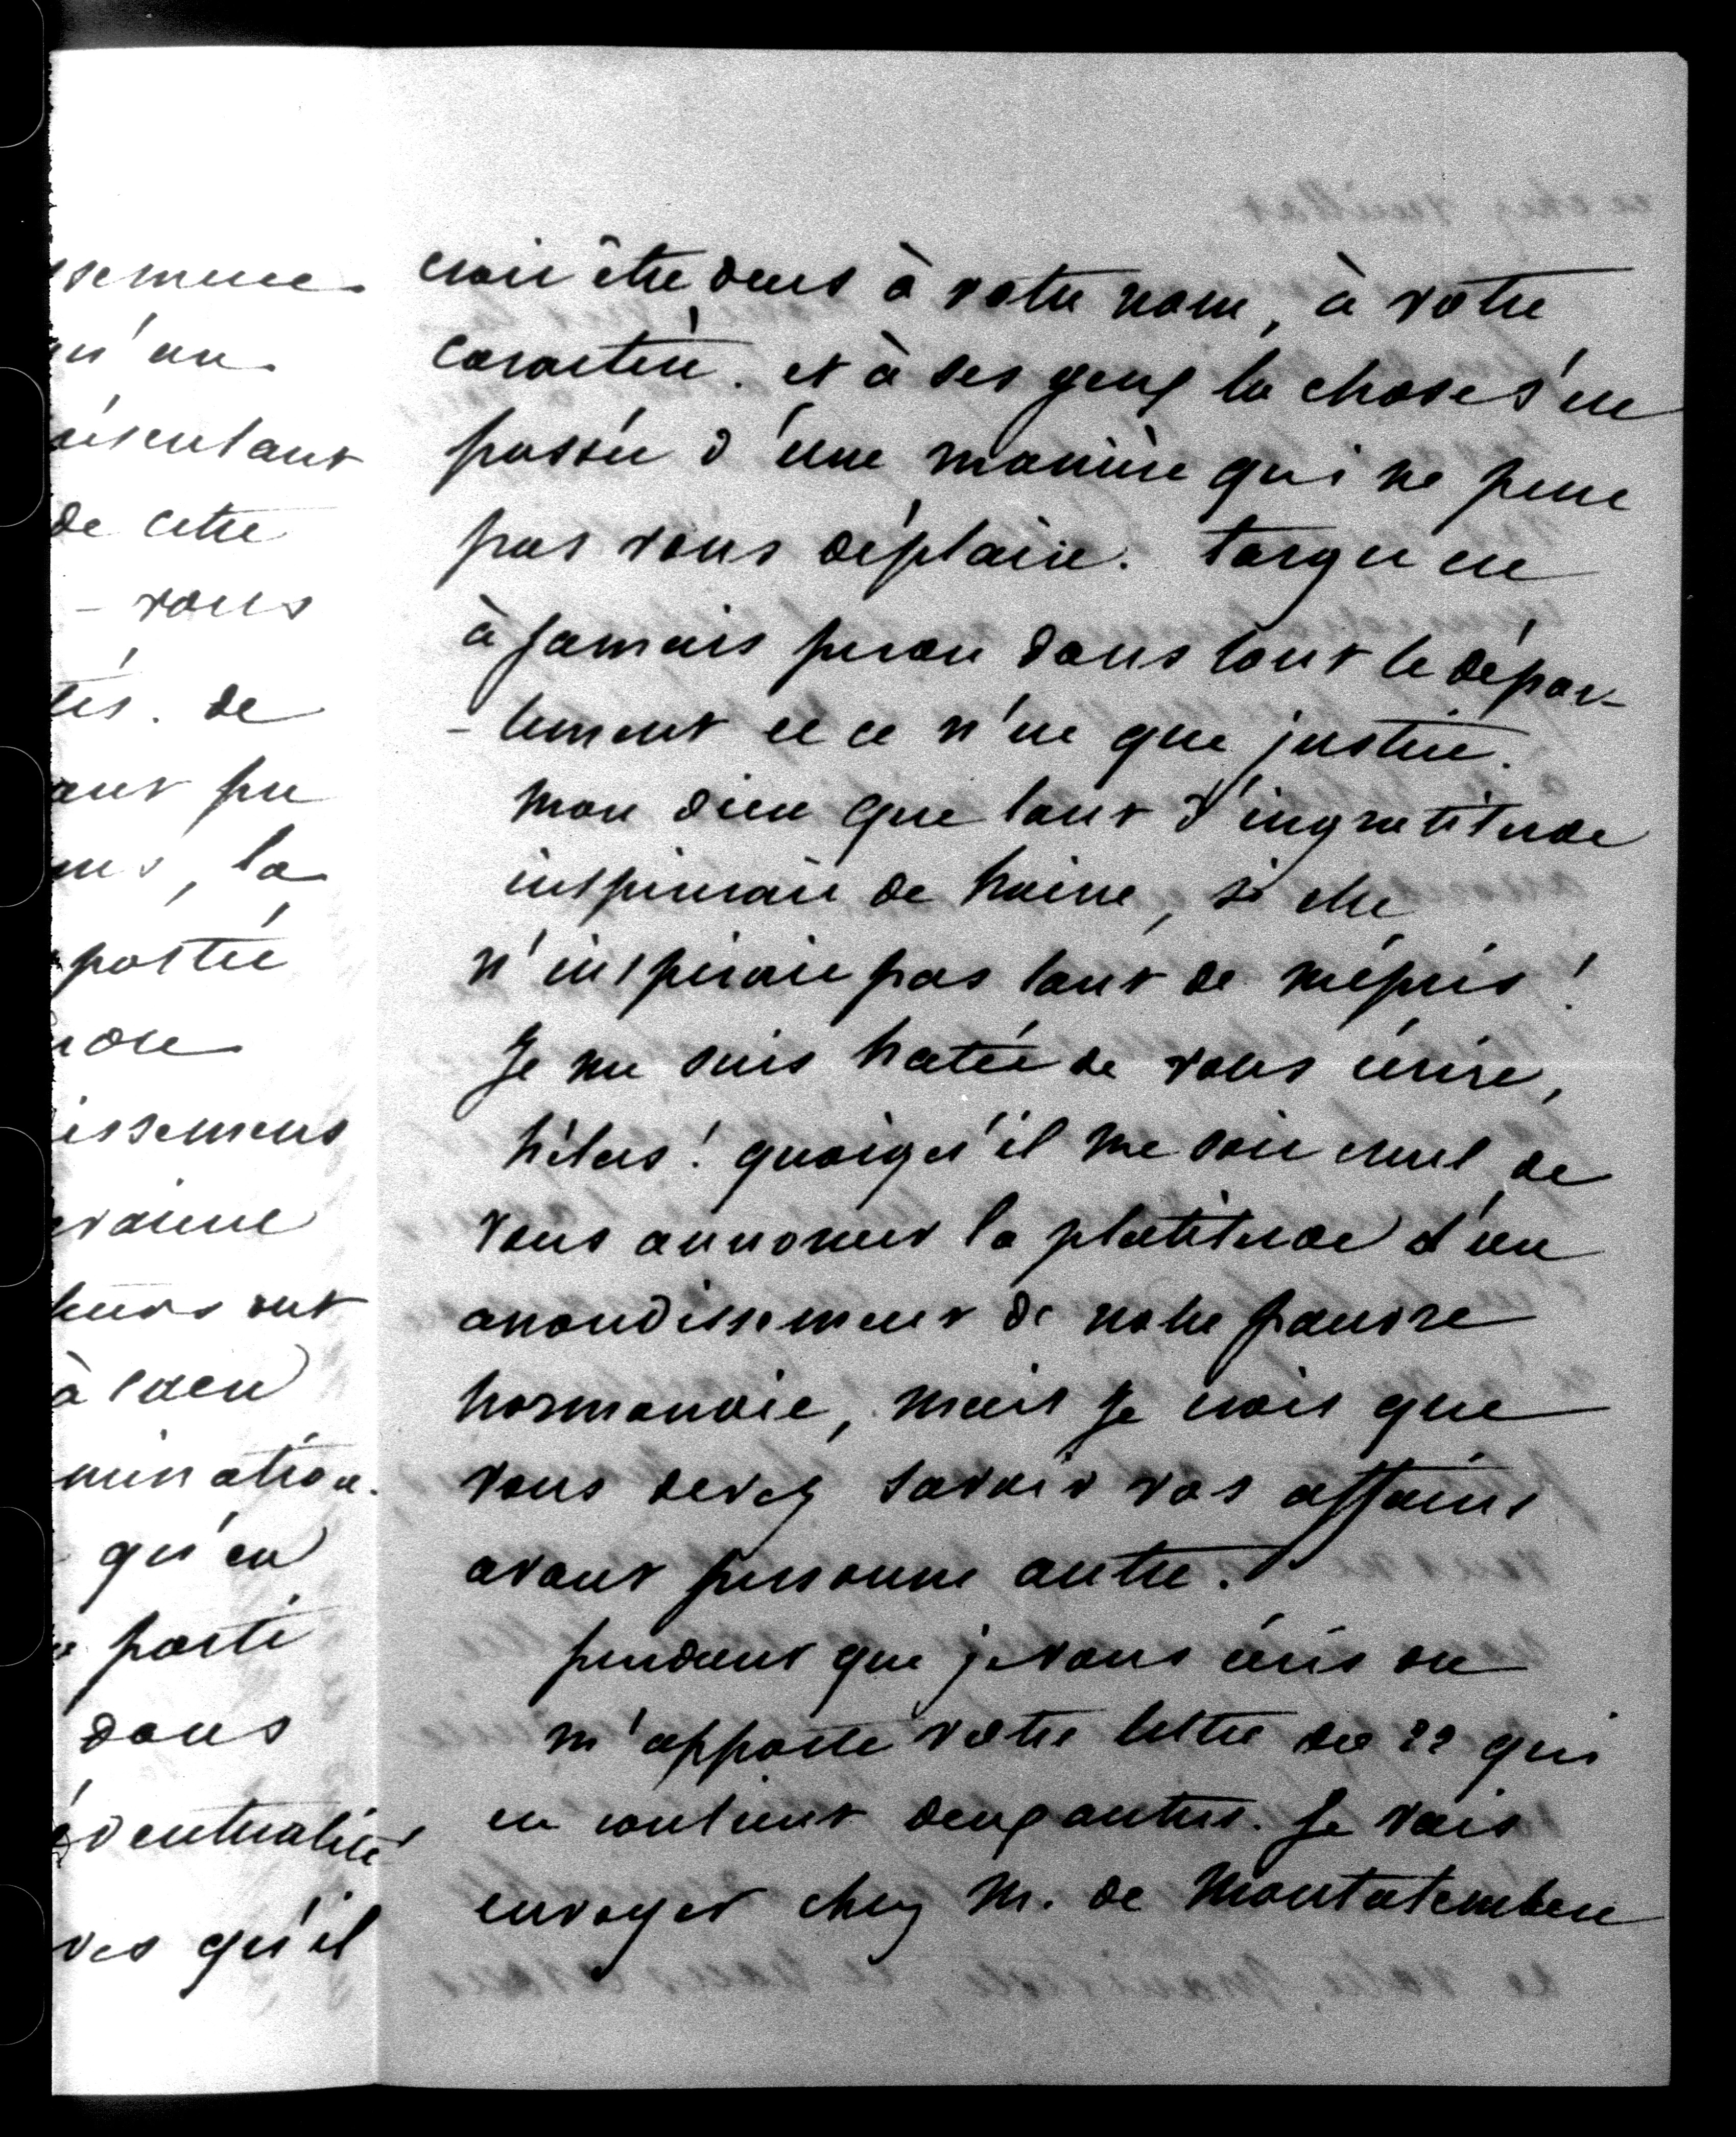 ssemene
qu'au
ésentant
de cette
- vous
tés. de
ant pu
la
portée
issemens
à Caen
mination.
qu'en
parti
dans
éventualité
ves qu'il
croit être deus à votre nom, à votre
caractère. et à ses yeux la chose s'est
passée d'une manière qui ne peut
pas vous déplaire. targu est
à jamais perdu dans tout le dépar-
- tement et ce n'est que justice.
mon dieu que tant d'ingratitude
inspirerait de haine, si elle
n'inspirait pas tant de mépris!
Je me suis hatée de vous écrire,
hélas! quoiqu'il me soit cruel de
vous annoncer la platitude d'un
arrondissement de notre pauvre
normandie, mais je crois que
vous devez savoir vos affaires
avant personne autre.
pendant que je vous écris on
m'apporte votre lettre du 22 qui
en contient deux autres. Je vais
envoyer chez M. de Montalembert